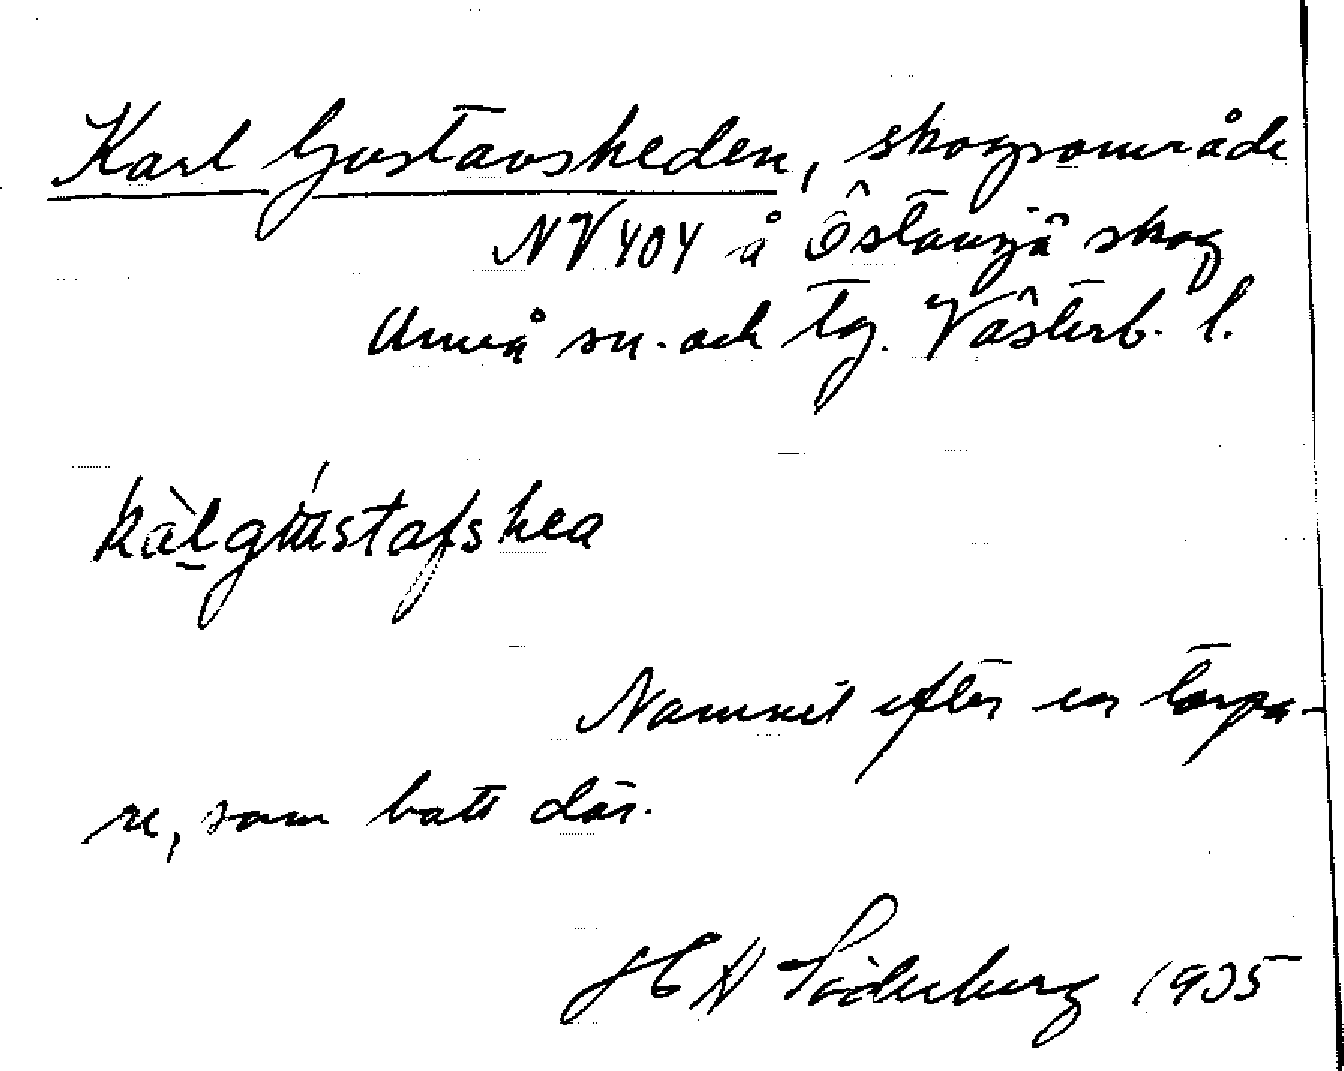 Karl Gustavsheden, skogsområde
NV 404 å Östansjö skog
Umeå sn. och tg. Västerb. l.
kàl gústafshea
Namnet efter en torpa-
re, som bott där.
Söderberg 1935